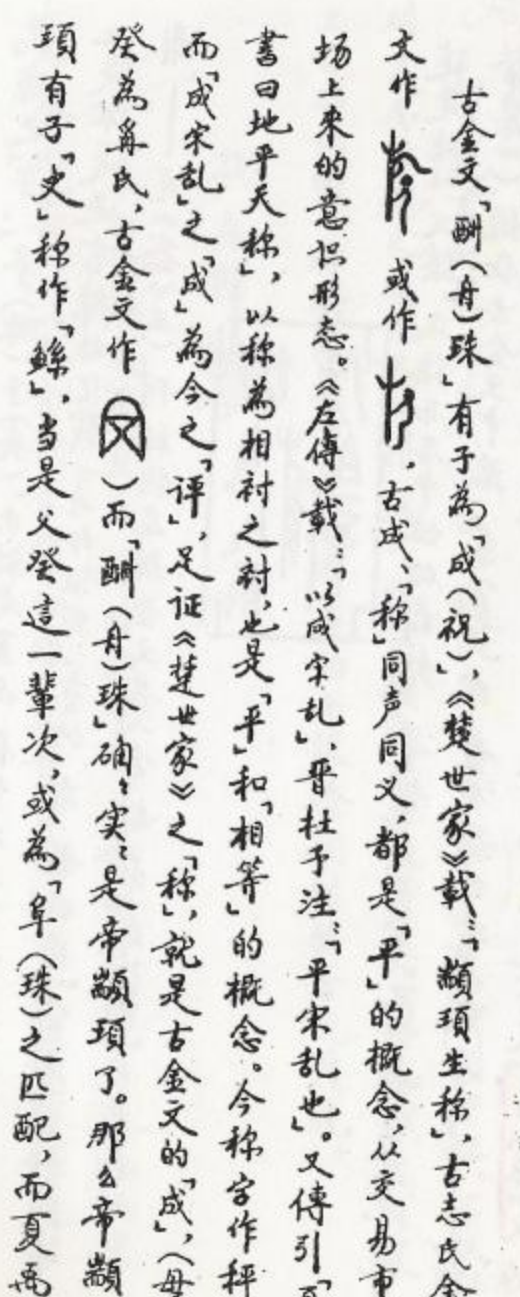 古金文「酬(舟)珠」有子為「成(祝)」,《楚世家》載:「顓頊生称」,古志氏金
文作 或作 ,古成、「称」同声同义,都是「平」的概念,从交易市
场上来的意识形态。《左傳》載:「以成宋乱」,晉杜予注:「平宋乱也」。又傳引「
書曰地平天称」,以称為相衬之衬,也是「平」和「相等」的概念。今称字作秤
而「成宋乱」之「成」為今之「評」,足证《楚世家》之「称」,就是古金文的「成」,(母
癸為 氏,古金文作 )而「酬(舟)珠」确々实々是帝顓頊了。那么帝顓
頊有子「史」称作「鯀」,当是父癸這一輩次,或為「阜(珠)之匹配,而夏禹